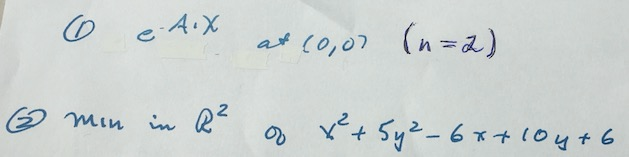 ① e-A·X at (0,0) (n=2)
② min in R² of x²+5y²-6x+10y+6